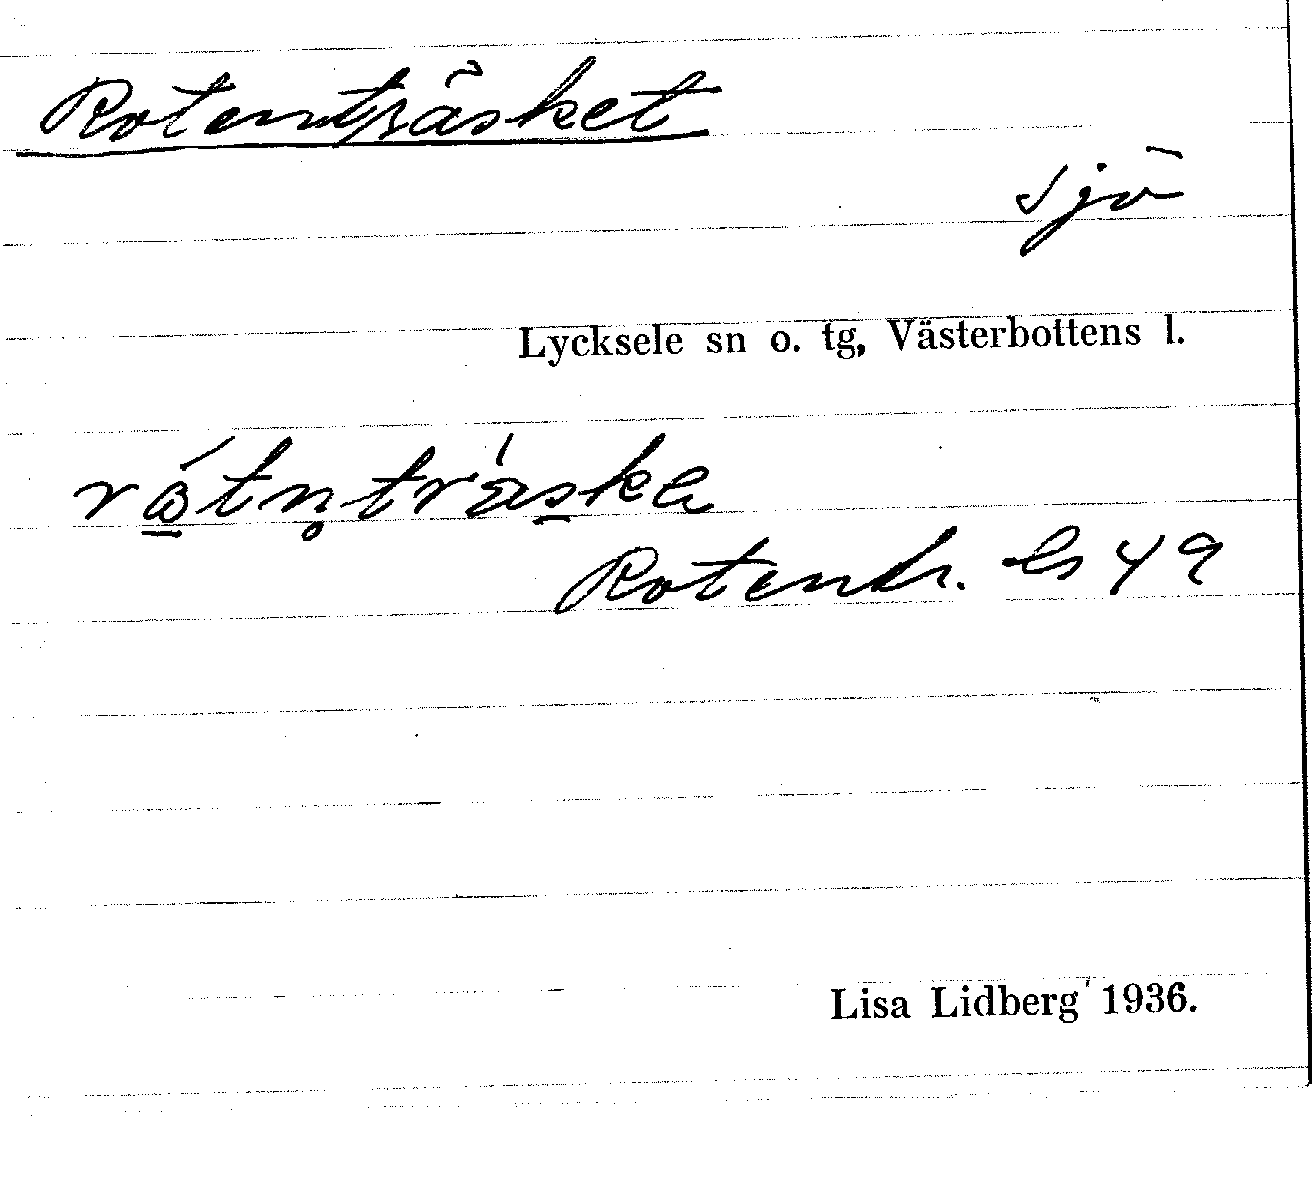 Rotenträsket
sjö
Lycksele sn o. tg, Västerbottens l.
Rotentr.
Lisa Lidberg 1936.